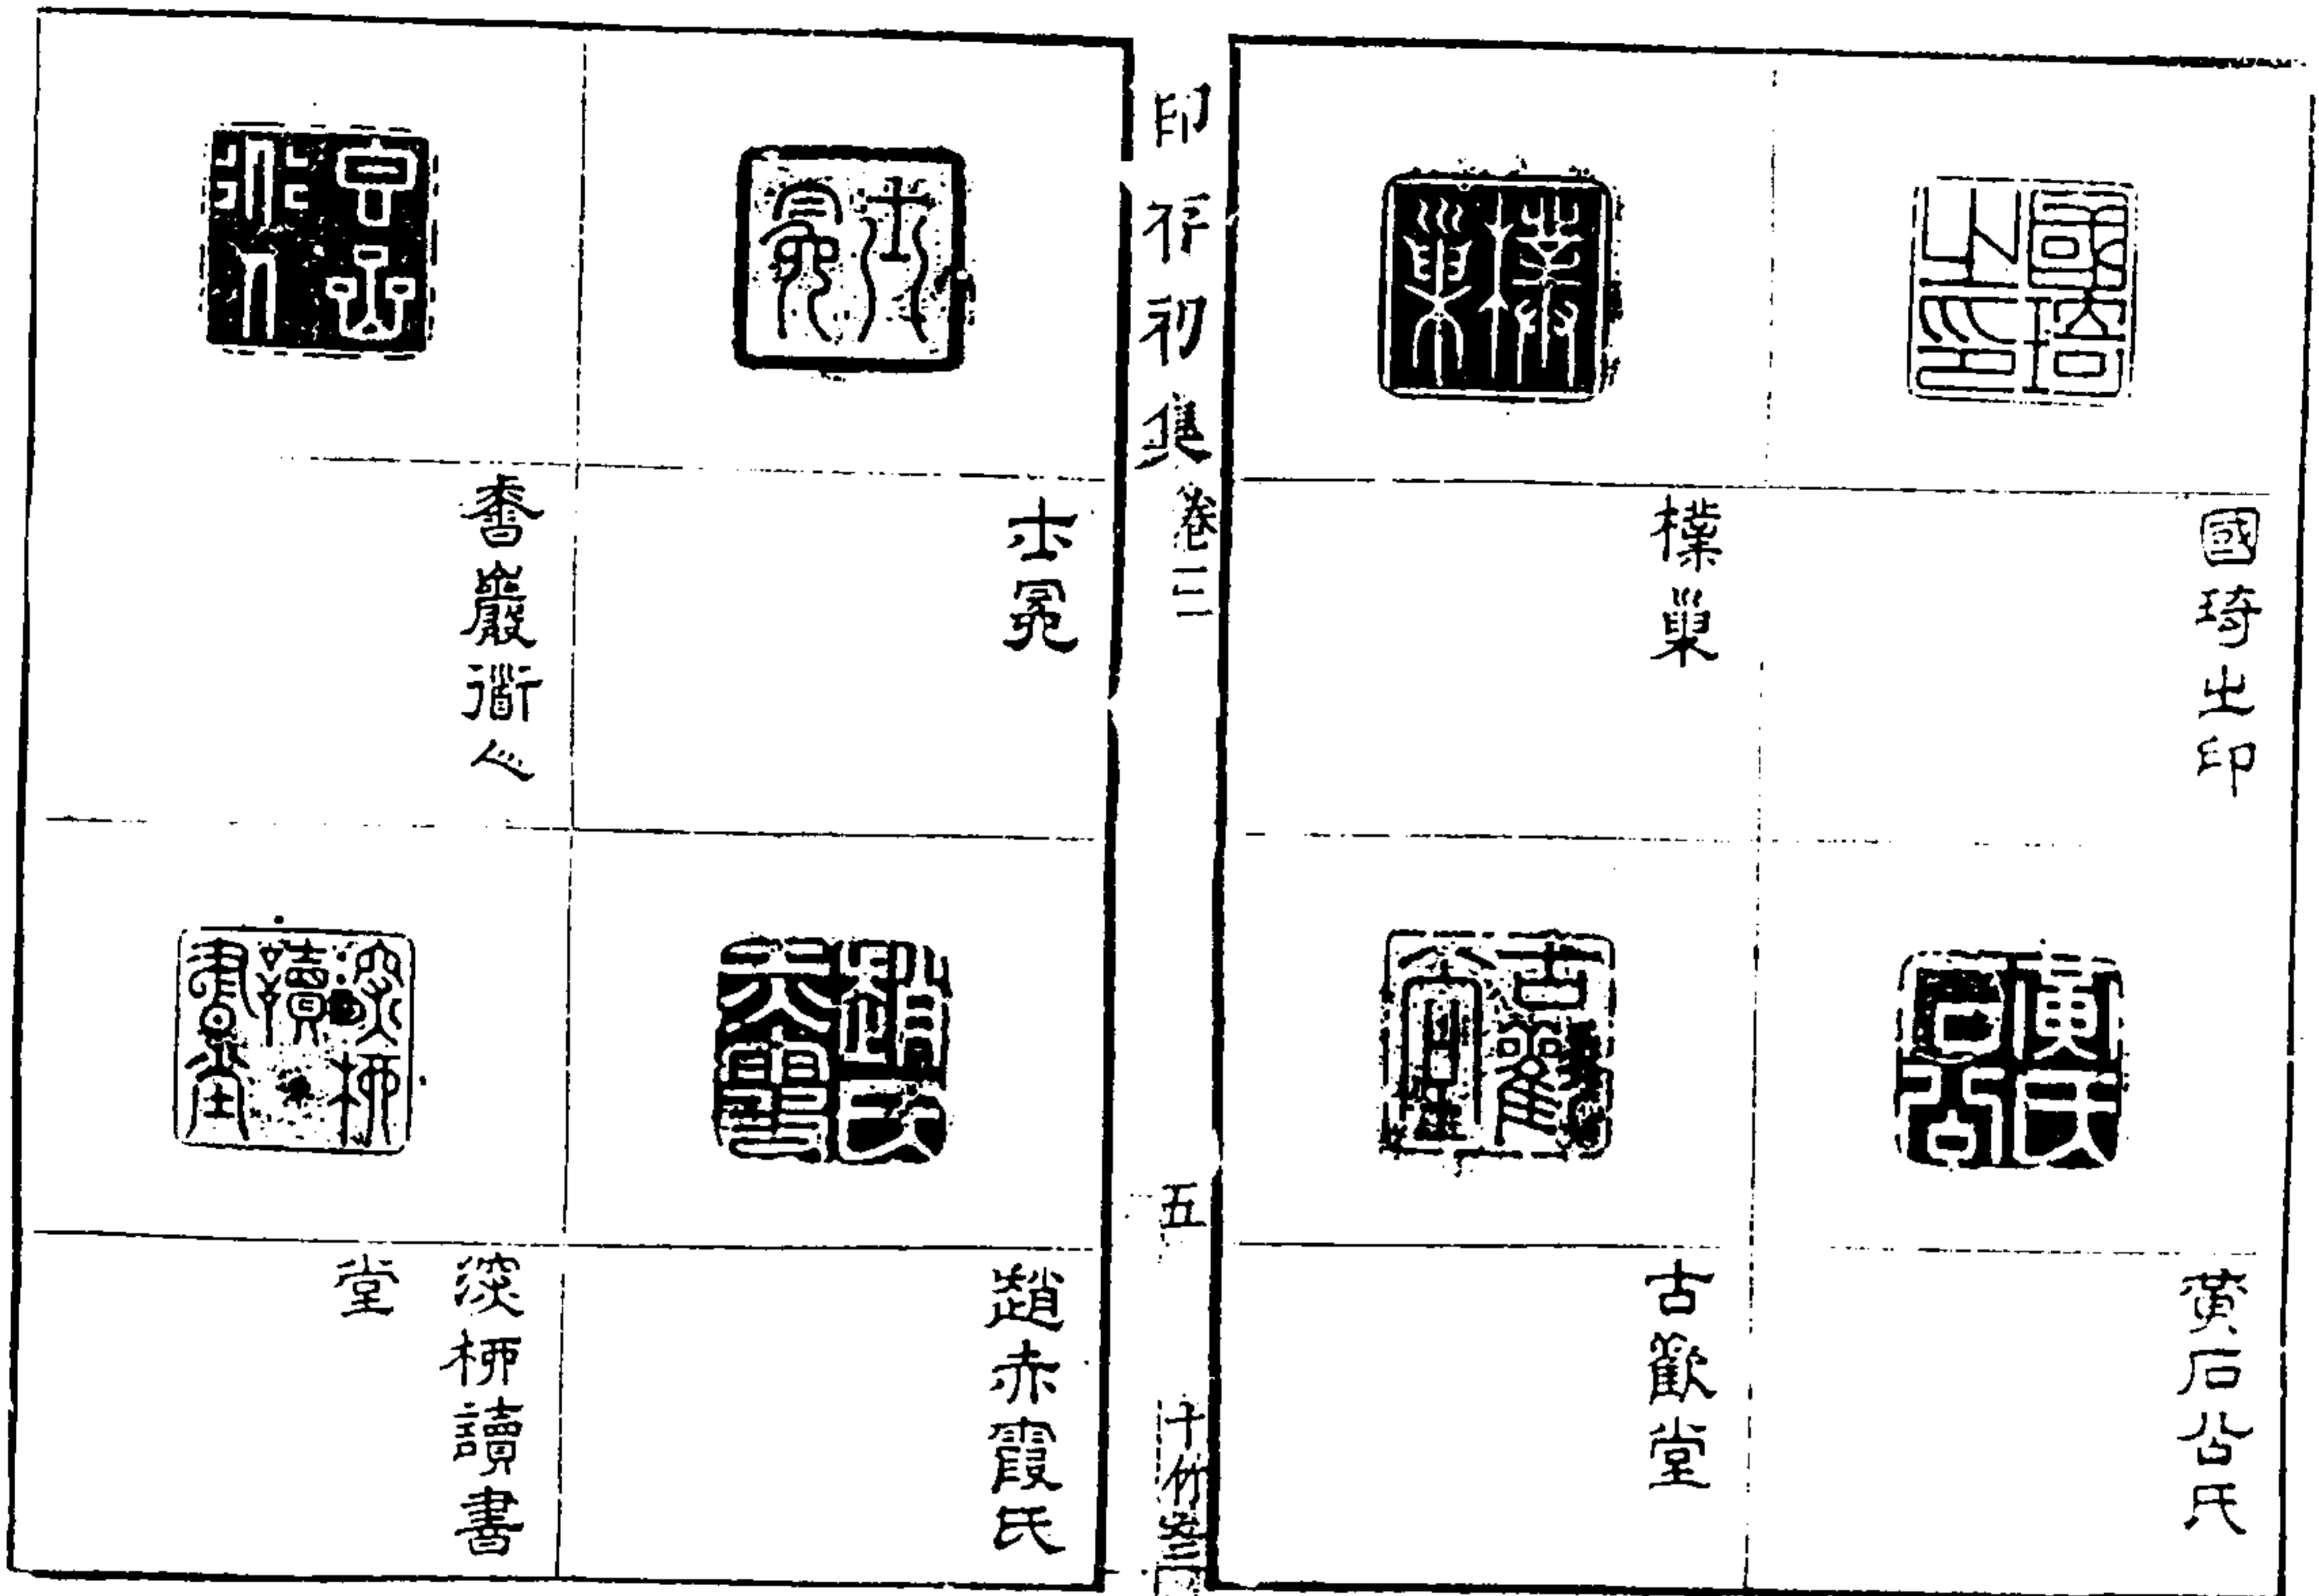 國琦之印
樸巢
黃石公氏
古歡堂
印存初集
卷三
五
十竹齋
香巖衜人
趙赤霞氏
深栁讀書
堂